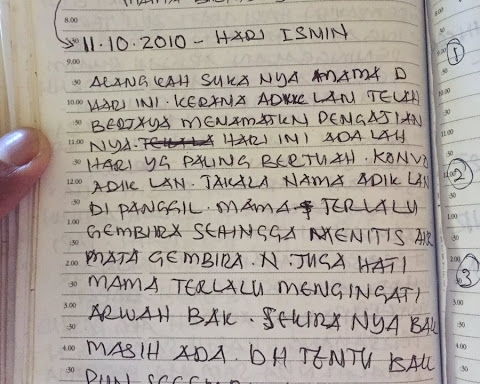 8.00
:30 11.10.2010 - HARI ISMIN
9.00
:30 ALANGKAH SUKA NYA MAMA D
10.00 HARI INI. KERANA ADIK LAN TELAH
:30 BERJAYA MENAMATKN PENGAJIAN
11.00 NYA. HARI INI ADA LAH
:30 HARI YG PALING BERTUAH. KONVO
12.00 ADIK LAN. TAKALA NAMA ADIK LAN
:30 DI PANGGIL. MAMA TERLALU
1.00 GEMBIRA SEHINGGA MENITIS AIR
:30
2.00 MATA GEMBIRA. N JUGA HATI
:30 MAMA TERLALU MENGINGATI
3.00 ARWAH BAK. SEKIRA NYA BAK
:30
4.00 MASIH ADA. DH TENTU BAK
:30 PUN
1
2
3